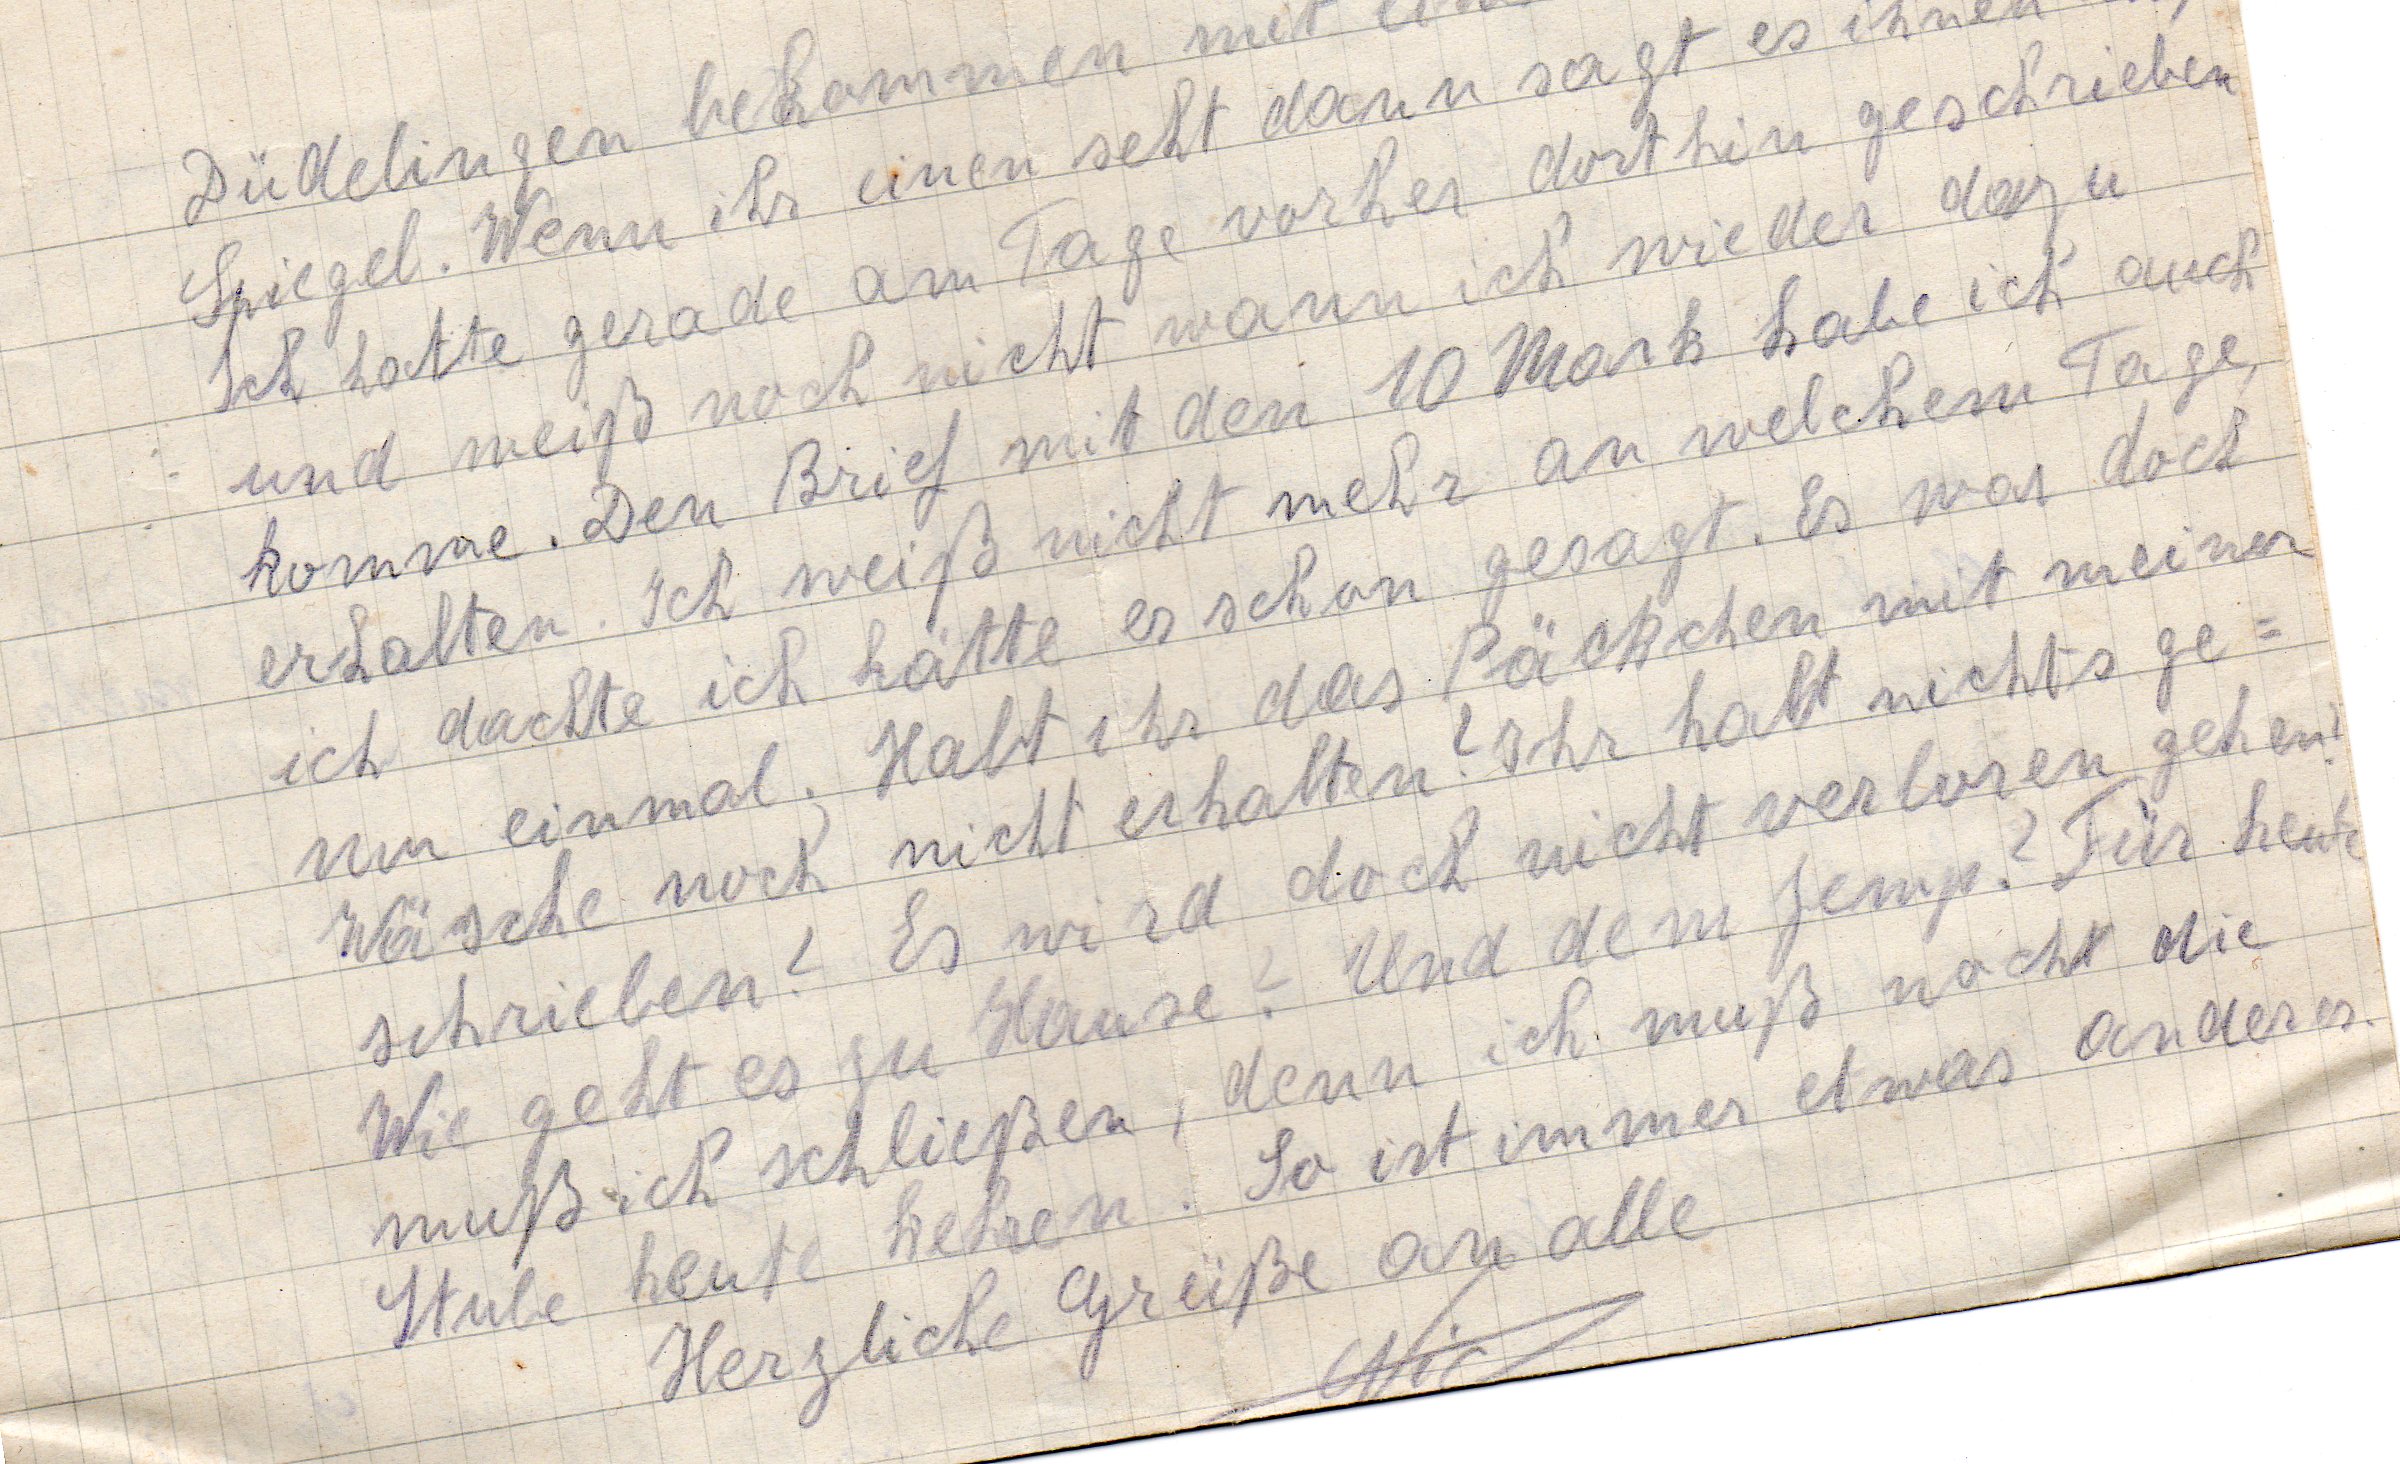 Düdelingen bekommen mit
Spiegel. Wenn ihr einen seht dann sagt es ihnen
Ich hatte gerade am Tage vorher dorthin geschrieben
und weiß noch nicht wann ich wieder dazu
komme. Den Brief mit den 10 Mark habe ich auch
erhalten. Ich weiß nicht mehr an welchem Tage,
ich dachte ich hätte es schon gesagt. Es war doch
nun einmal. Habt ihr das Päckchen mit meiner
Wäsche noch nicht erhalten? Ihr habt nichts ge=
schrieben? Es wird doch nicht verloren gehen?
Wie geht es zu Hause? Und dem Jemp? Für heute
muß ich schließen, denn ich muß noch die
Stube heute kehren. So ist immer etwas anderes.
Herzliche Grüße an alle
Nic